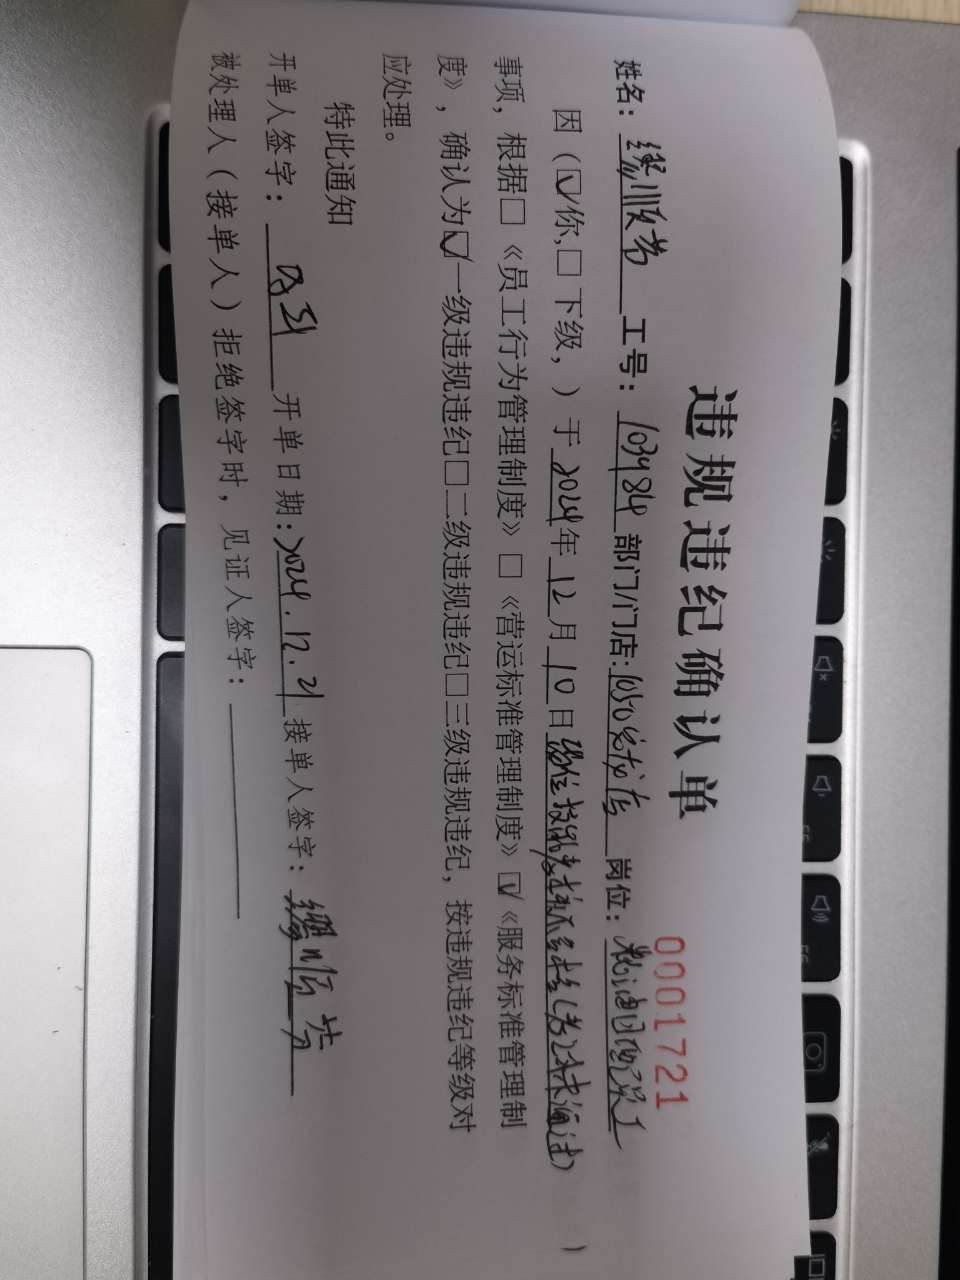 违规违纪确认单
0001721
姓名：缪川顺芳 工号：103484 部门/门店：1050 龙店 岗位：粮油日化员工
因（☑你，□下级，）于2024年12月10日岗位技能考核不合格（考2次未通过）
）
事项，根据□《员工行为管理制度》□《营运标准管理制度》☑《服务标准管理制
度》，确认为☑一级违规违纪□二级违规违纪□三级违规违纪，按违规违纪等级对
应处理。
特此通知
开单人签字： 开单日期：2024.12.21 接单人签字：
被处理人（接单人）拒绝签字时，见证人签字：